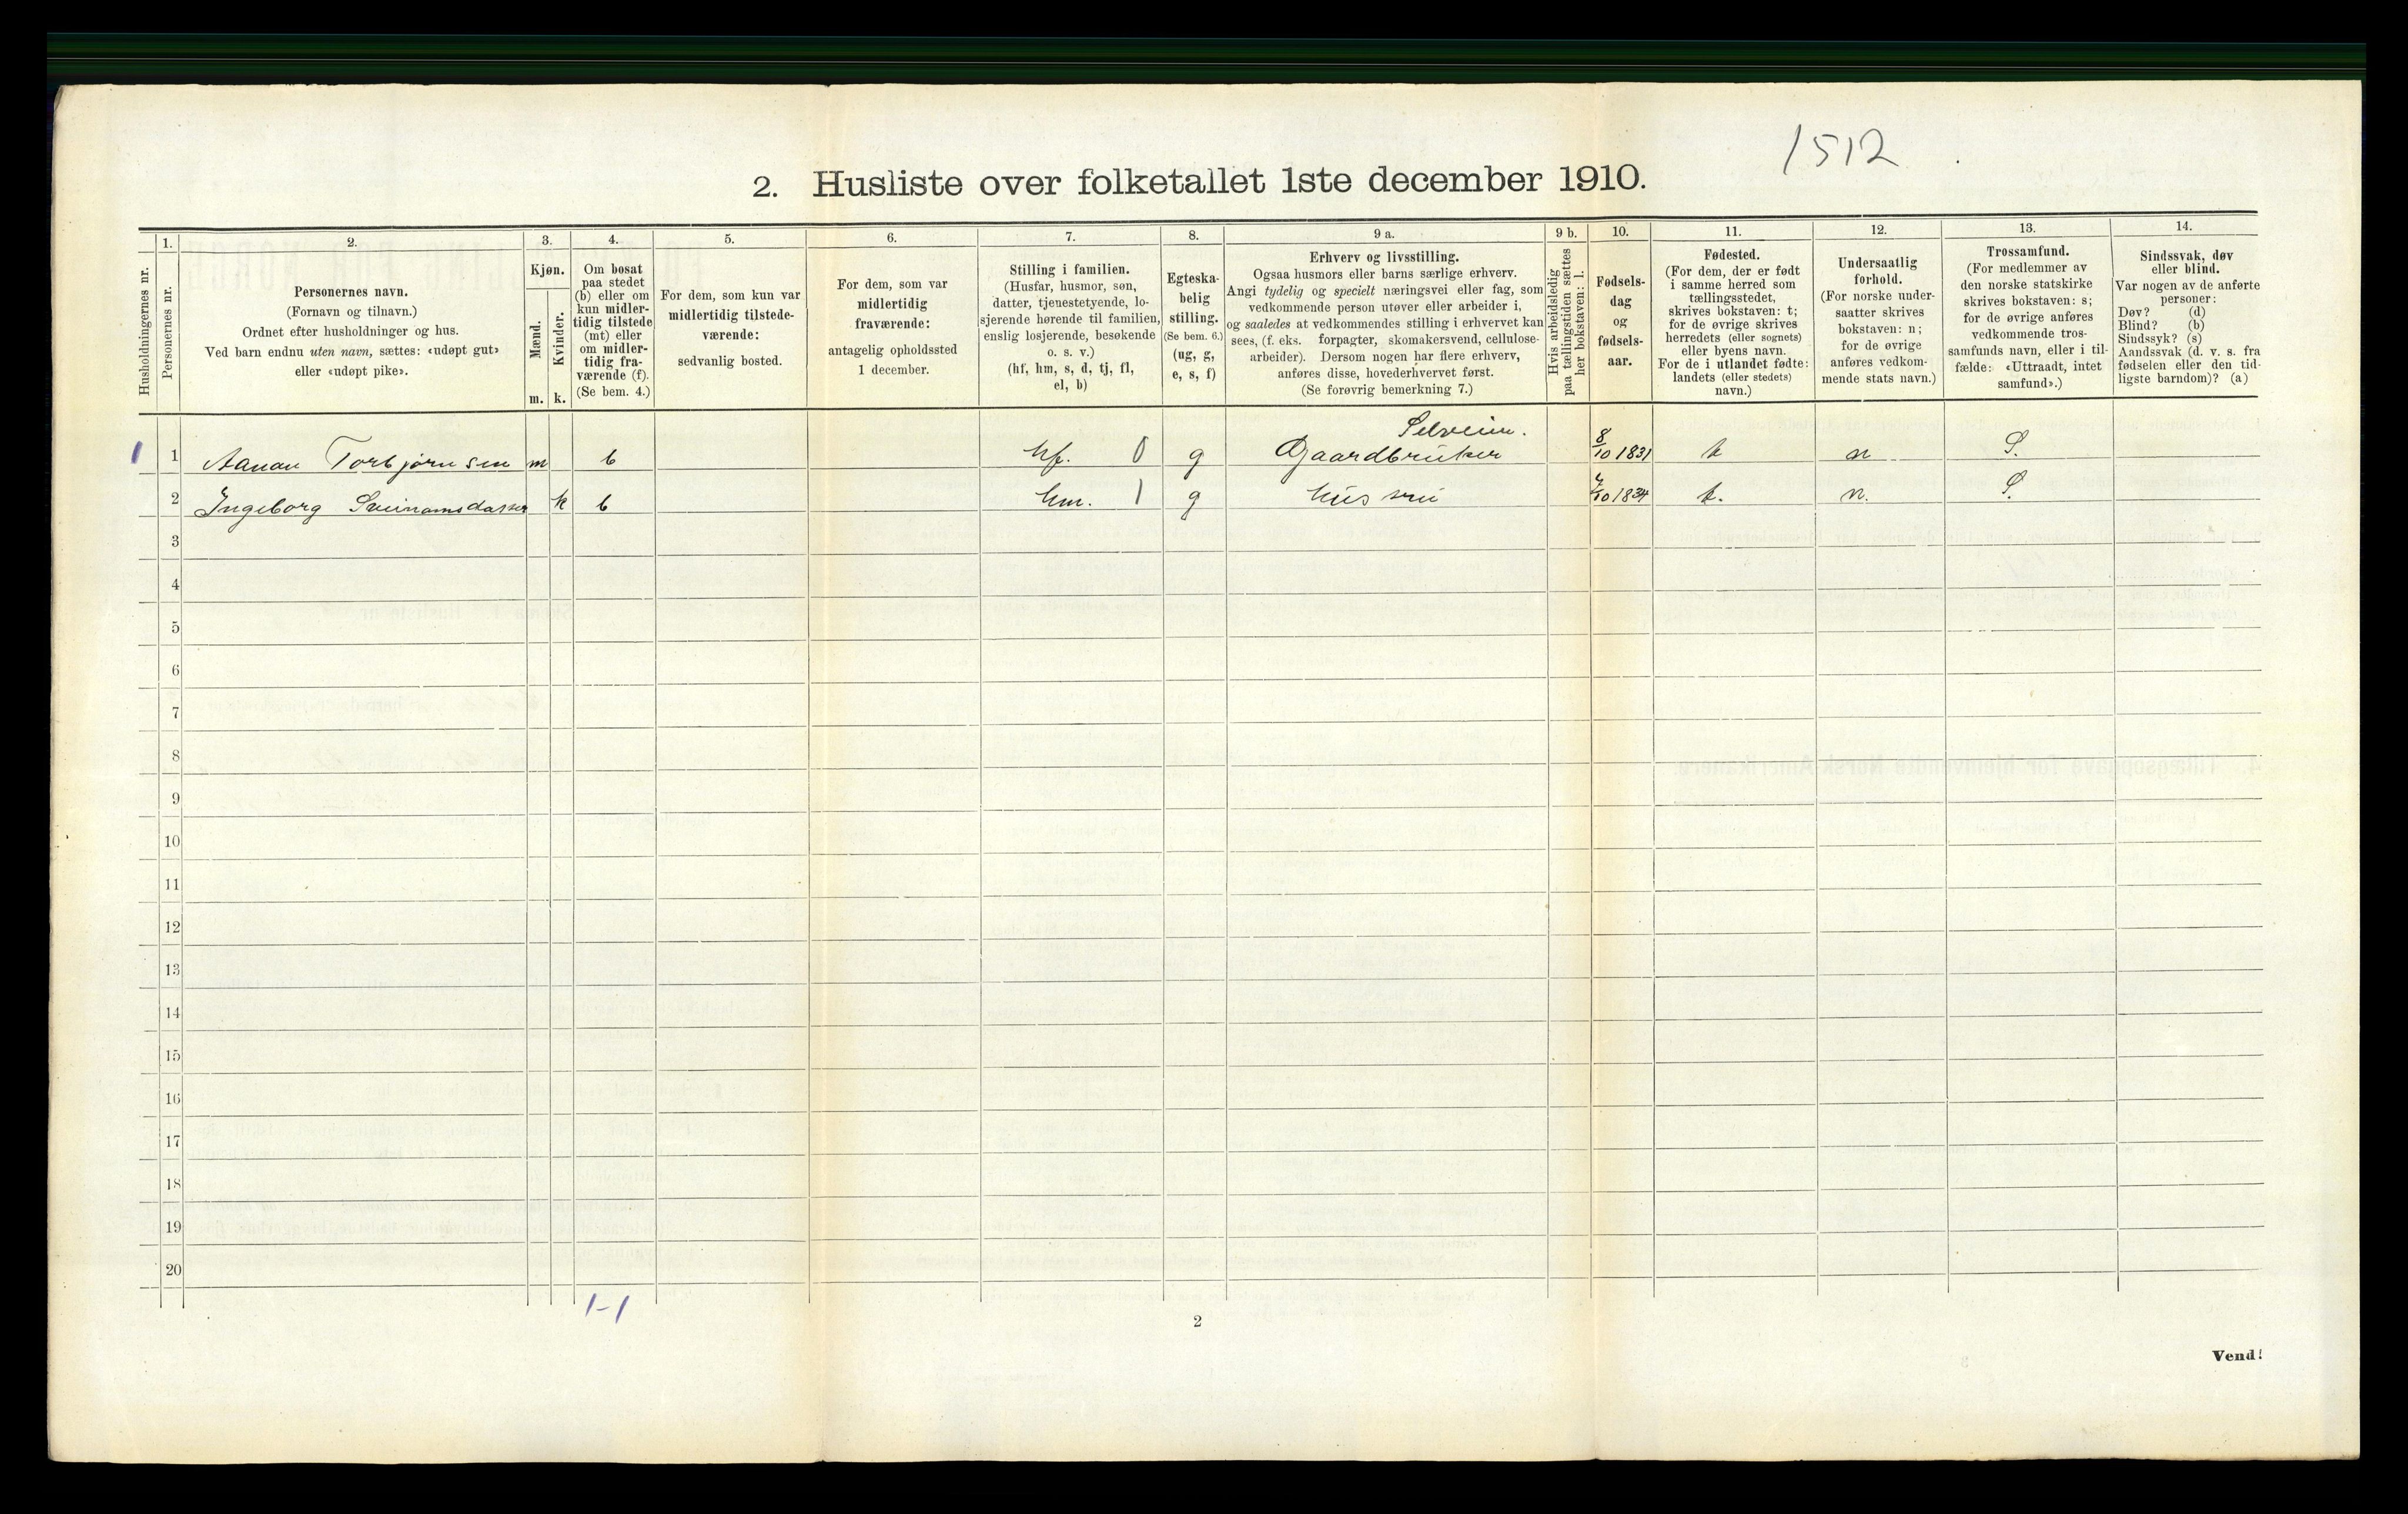 1512
2. Husliste over folketallet 1ste december 1910.
Husholdningernes nr.
1.
Personernes nr.
2.
Personernes navn.
(Fornavn og tilnavn.)
Ordnet efter husholdninger og hus.
Ved barn endnu uten navn, sættes: «udøpt gut»
eller «udøpt pike».
3.
Kjøn.
Mænd.
Kvinder.
m. k.
4.
Om bosat
paa stedet
(b) eller om
kun midler-
tidig tilstede
(mt) eller
om midler-
tidig fra-
værende (f).
(Se bem. 4.)
5.
For dem, som kun var
midlertidig tilstede-
værende:
sedvanlig bosted.
6.
For dem, som var
midlertidig
fraværende:
antagelig opholdssted
1 december.
7.
Stilling i familien.
(Husfar, husmor, søn,
datter, tjenestetyende, lo-
sjerende hørende til familien,
enslig losjerende, besøkende
o. s. v.)
(hf, hm, s, d, tj, fl,
el, b)
8.
Egteska-
belig
stilling.
(Se bem. 6.)
(ug, g,
e, s, f)
9 a.
Erhverv og livsstilling.
Ogsaa husmors eller barns særlige erhverv.
Angi tydelig og specielt næringsvei eller fag, som
vedkommende person utøver eller arbeider i,
og saaledes at vedkommendes stilling i erhvervet kan
sees, (f. eks. forpagter, skomakersvend, cellulose-
arbeider). Dersom nogen har flere erhverv,
anføres disse, hovederhvervet først.
(Se forøvrig bemerkning 7.)
9 b.
Hvis arbeidsledig
paa tællingstiden sættes
her bokstaven: l.
10.
Fødsels-
dag
og
fødsels-
aar.
11.
Fødested.
(For dem, der er født
i samme herred som
tællingsstedet,
skrives bokstaven: t;
for de øvrige skrives
herredets (eller sognets)
eller byens navn.
For de i utlandet fødte:
landets (eller stedets)
navn.)
12.
Undersaatlig
forhold.
(For norske under-
saatter skrives
bokstaven: n;
for de øvrige
anføres vedkom-
mende stats navn.)
13.
Trossamfund.
(For medlemmer av
den norske statskirke
skrives bokstaven: s;
for de øvrige anføres
vedkommende tros-
samfunds navn, eller i til-
fælde: «Uttraadt, intet
samfund».)
14.
Sindssvak, døv
eller blind.
Var nogen av de anførte
personer:
Døv? (d)
Blind? (b)
Sindssyk? (s)
Aandssvak (d. v. s. fra
fødselen eller den tid-
ligste barndom)? (a)
Selveier.
1 1 Aanau Torbjørnsen m b hf. 0 g Gaardbruker 8/10 1831 t n S.
2 Ingeborg k b hm. 1 g Hus 1834 t. n. S.
3
4
5
6
7
8
9
10
11
12
13
14
15
16
17
18
19
20
1-1
2
Vend!